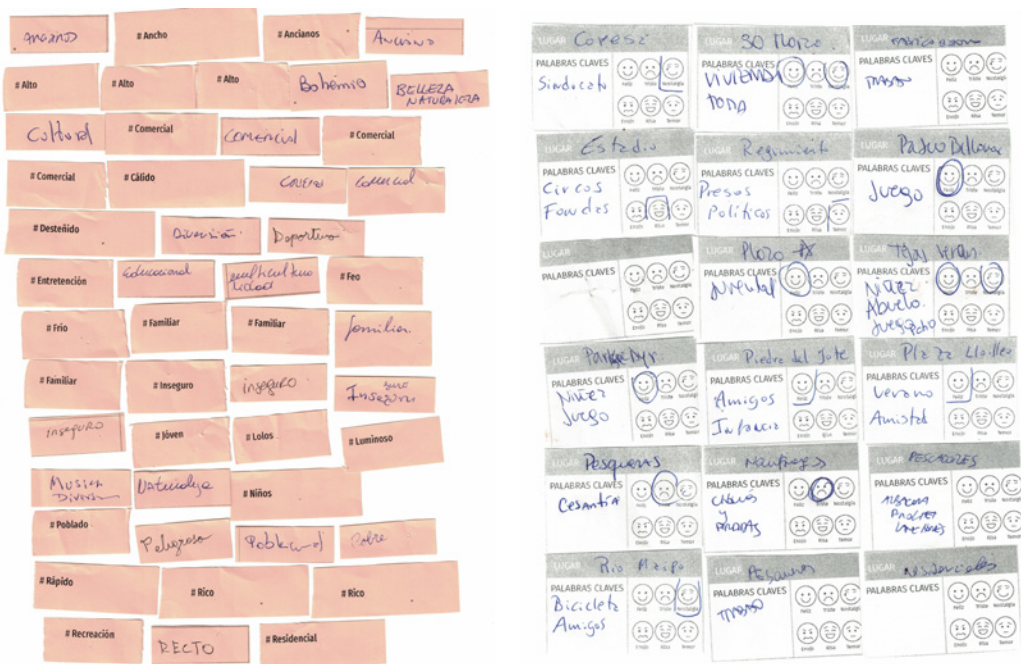 # Ancho
# Ancianos
Anciano
# Alto
# Alto
# Alto
Bohemio
BELLEZA
NATURALEZA
Cultural
# Comercial
COMERCIAL
# Comercial
# Comercial
# Cálido
Comercial
# Desteñido
Diversión
Deportivo
# Entretención
Educacional
multicultura
lidad
# Feo
# Frío
# Familiar
# Familiar
familiar
# Familiar
# Inseguro
inseguro
Inseguro
INSEGURO
# Jóven
# Lolos
# Luminoso
Musica
Diversión
Naturaleza
# Niños
# Poblado
Peligroso
Poblacional
Pobre
# Rápido
# Rico
# Rico
# Recreación
RECTO
# Residencial
LUGAR
PALABRAS CLAVES
Sindicato
Feliz Triste Nostalgia
Enojo Risa Temor
LUGAR 30 Marzo
PALABRAS CLAVES
VIVIENDA
TOMA
Feliz Triste Nostalgia
Enojo Risa Temor
LUGAR
PALABRAS CLAVES
TRABAJO
Feliz Triste Nostalgia
Enojo Risa Temor
LUGAR Estadio
PALABRAS CLAVES
Circos
Fondas
Feliz Triste Nostalgia
Enojo Risa Temor
LUGAR Regimiento
PALABRAS CLAVES
Presos
Políticos
Feliz Triste Nostalgia
Enojo Risa Temor
LUGAR Paseo Bellamar
PALABRAS CLAVES
Juego
Feliz Triste Nostalgia
Enojo Risa Temor
LUGAR
PALABRAS CLAVES
Feliz Triste Nostalgia
Enojo Risa Temor
LUGAR Plaza
PALABRAS CLAVES
Juventud
Feliz Triste Nostalgia
Enojo Risa Temor
LUGAR Tejas Verdes
PALABRAS CLAVES
Niñez
Abuelo.
Juego
Feliz Triste Nostalgia
Enojo Risa Temor
LUGAR Parque Dyr.
PALABRAS CLAVES
Niñez
Juego
Feliz Triste Nostalgia
Enojo Risa Temor
LUGAR Piedra del Jote
PALABRAS CLAVES
Amigos
Infancia
Feliz Triste Nostalgia
Enojo Risa Temor
LUGAR Plaza Llolleo
PALABRAS CLAVES
Verano
Amistad
Feliz Triste Nostalgia
Enojo Risa Temor
LUGAR Pesqueras
PALABRAS CLAVES
Cesantía
Feliz Triste Nostalgia
Enojo Risa Temor
LUGAR Naufragos
PALABRAS CLAVES
y
Feliz Triste Nostalgia
Enojo Risa Temor
LUGAR PESCADORES
PALABRAS CLAVES
Feliz Triste Nostalgia
Enojo Risa Temor
LUGAR Rio Maipo
PALABRAS CLAVES
Bicicleta
Amigos
Feliz Triste Nostalgia
Enojo Risa Temor
LUGAR
PALABRAS CLAVES
TRABAJO
Feliz Triste Nostalgia
Enojo Risa Temor
LUGAR Residenciales
PALABRAS CLAVES
Feliz Triste Nostalgia
Enojo Risa Temor